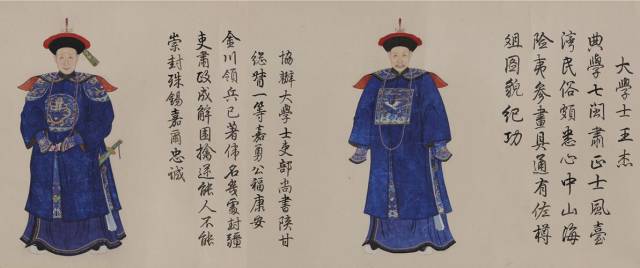 大學士王杰
典學七閩肅正士風臺
灣民俗頗悉心中山海
險夷參畫具通有佐樽
俎圖貌紀功
協辦大學士吏部尚書陝甘
總督一等嘉勇公福康安
金川領兵已著偉名幾處封疆
吏肅政成解圍擒逆能人不能
崇封殊錫嘉爾忠誠